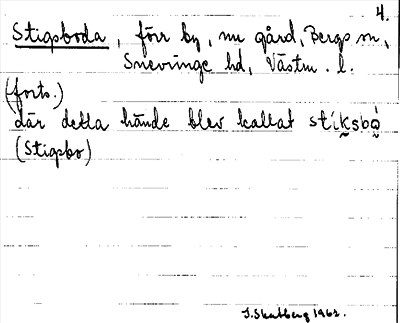 4.
Stigsboda, förr by, nu gård, Bergs sn,
Snevringe hd, Västm. l.
(forts.)
där detta hände blev kallat stíksbò
(Stigsbo)
1962.